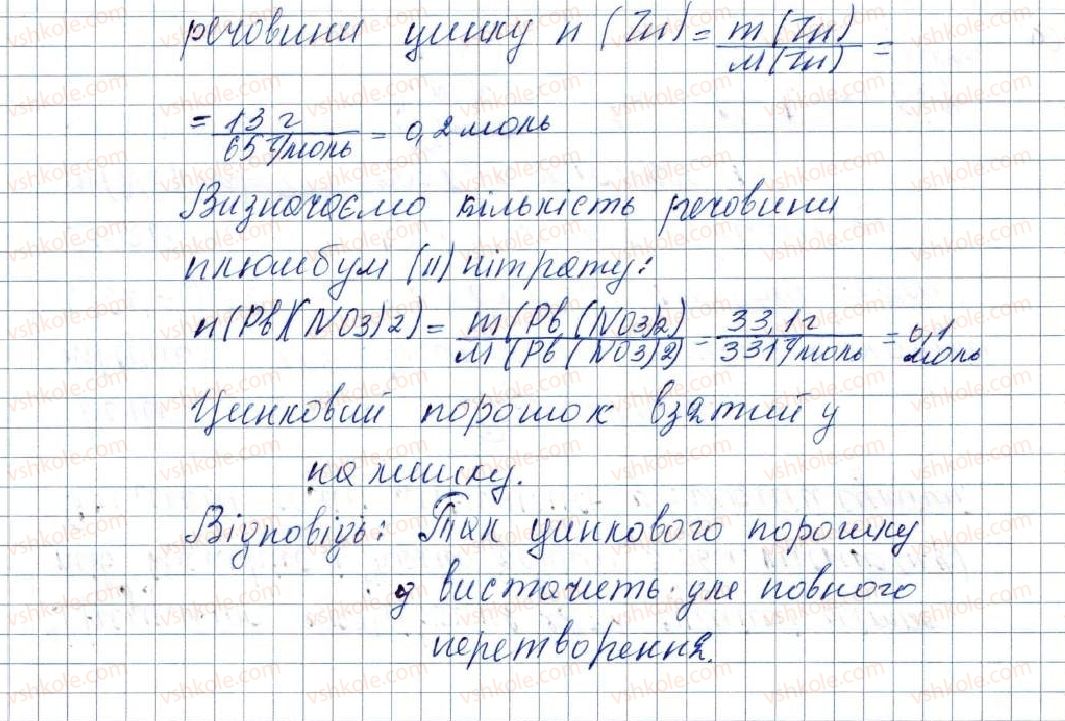 речовини цинку n (Zn) = m (Zn) / M (Zn) =
= 13 г / 65 г/моль = 0,2 моль
Визначаємо кількість речовини
плюмбум (II) нітрату:
n (Pb)(NO3)2) = m (Pb (NO3)2) / M (Pb (NO3)2) = 33,1 г / 331 г/моль = 0,1 моль
Цинковий порошок взятий у
налишку.
Відповідь: Так цинкового порошку
вистачить для повного
перетворення.